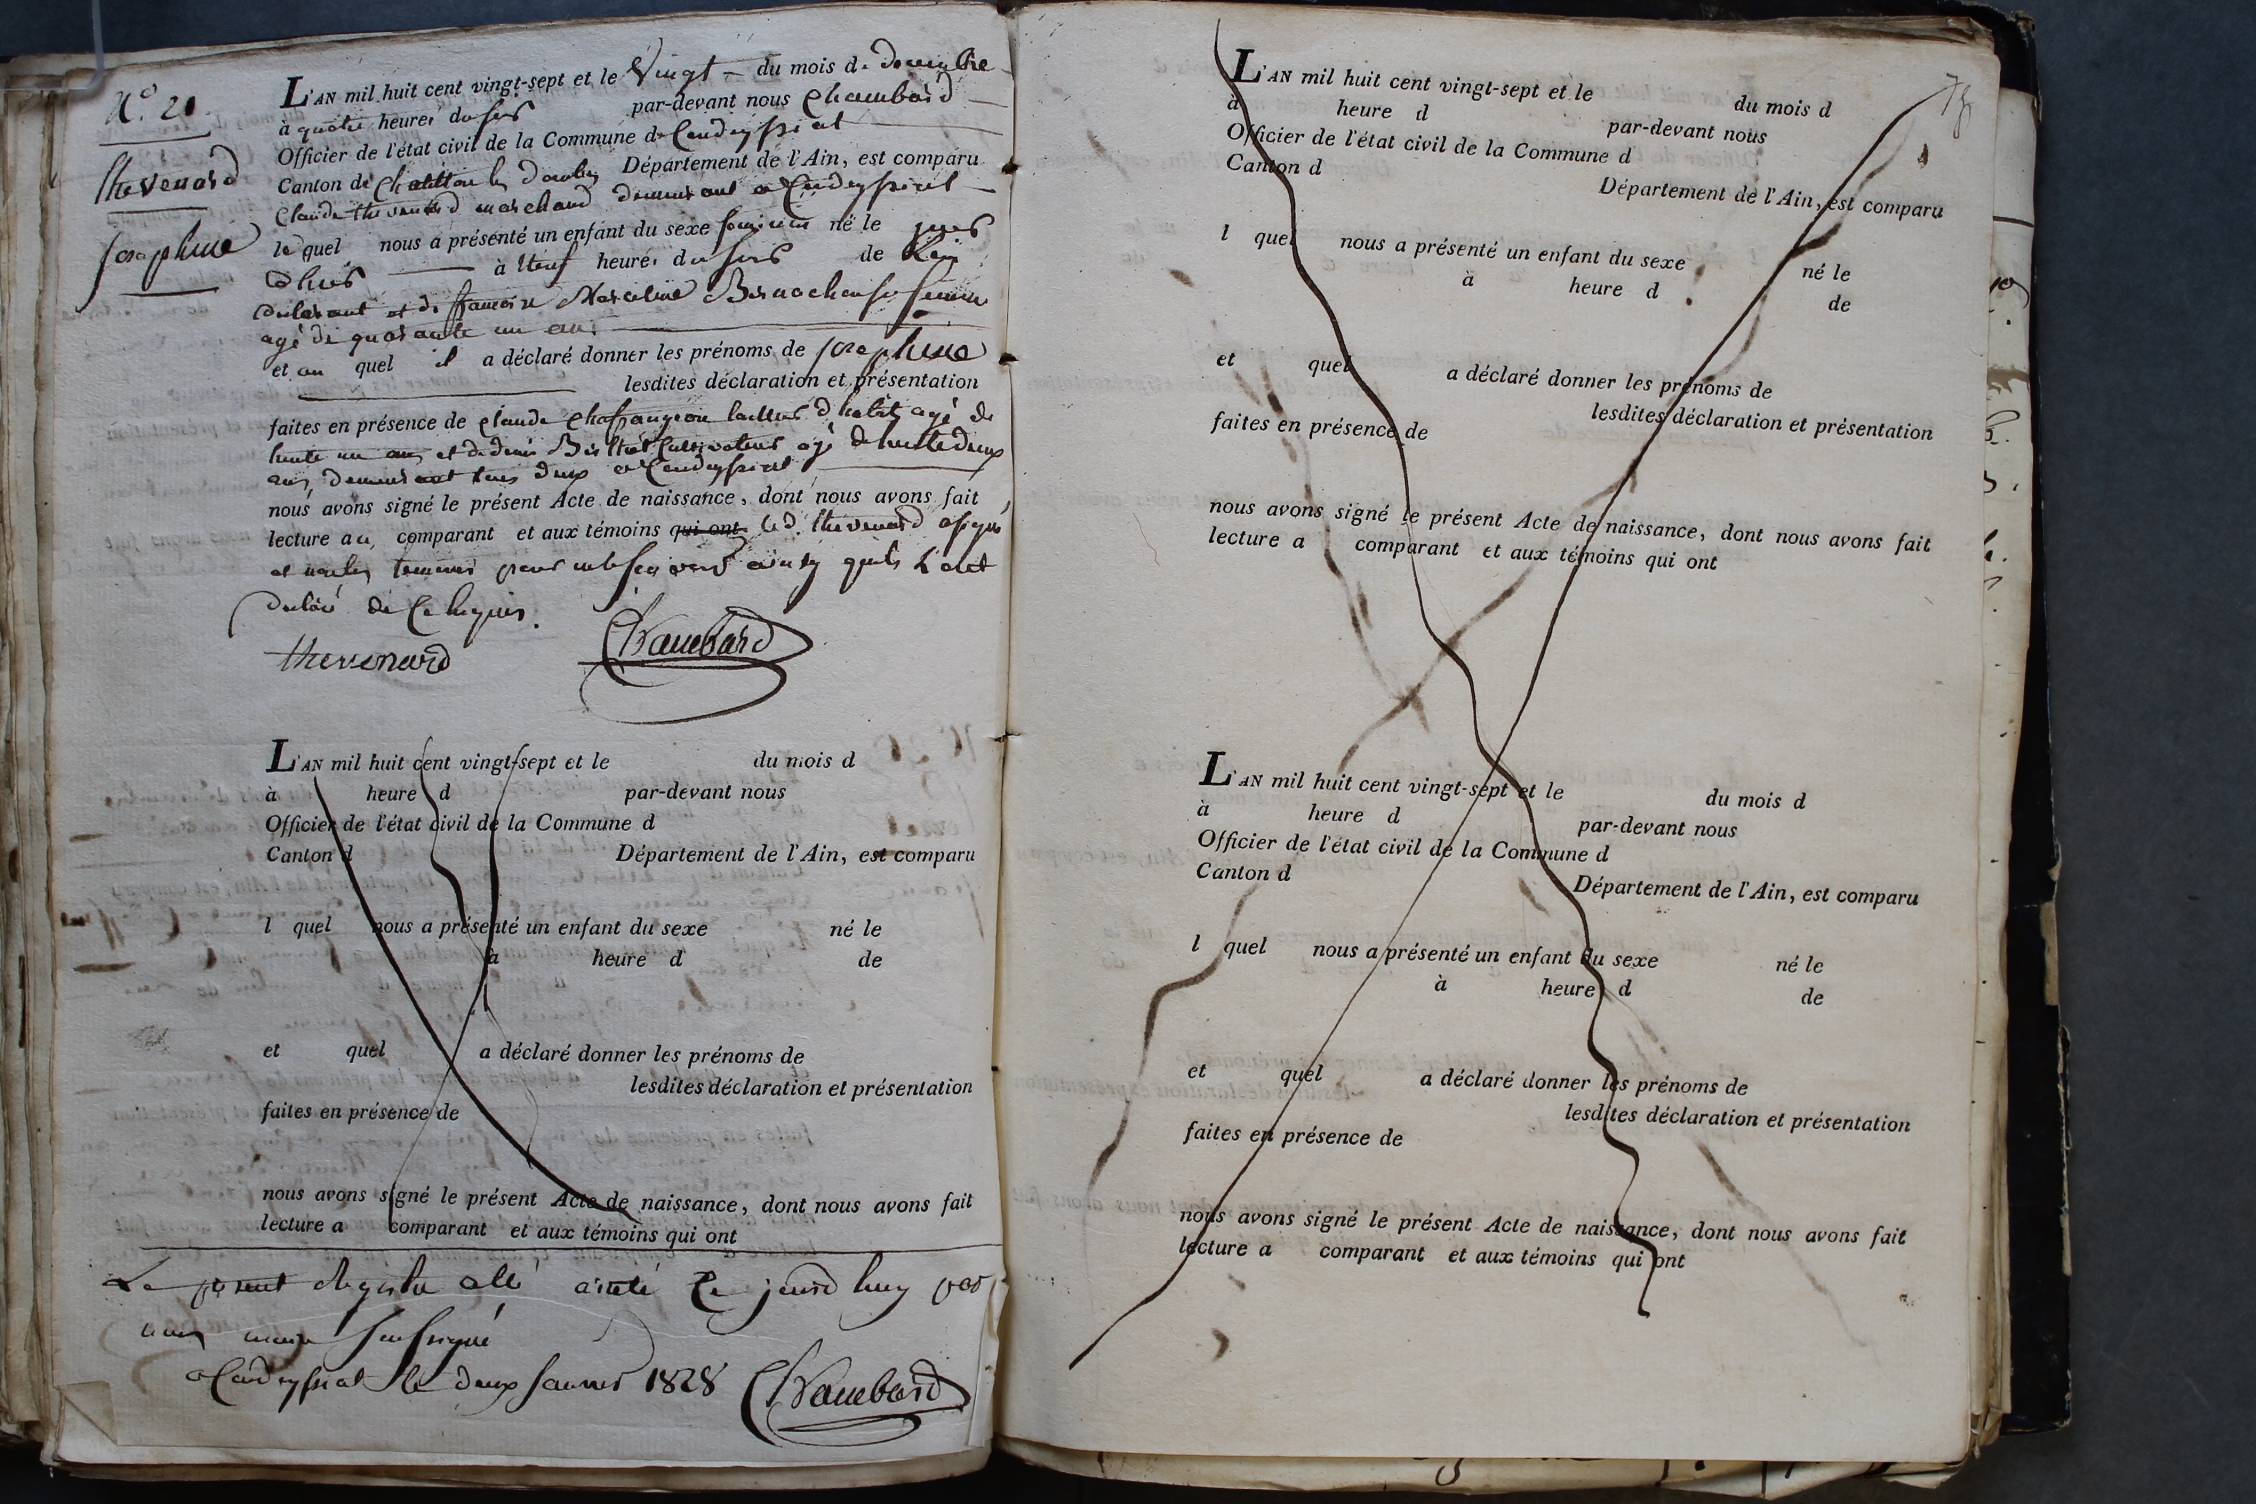 N.o 21
thevenard
Josephine
L'AN mil huit cent vingt-sept et le Vingt du mois de decembre
à quatre heures du soir par-devant nous Chambard
Officier de l'état civil de la Commune de Condeyssiat
Canton de Chatillon les dombes Département de l'Ain, est comparu
Claude thevenard marchand demeurant a Condeyssiat
le quel nous a présenté un enfant du sexe feminin né le jour
d'hier à neuf heures du soir de lui
declarant et de francoise Marceline femme
agé de quarante un ans
et au quel il a déclaré donner les prénoms de Josephine
lesdites déclaration et présentation
faites en présence de claude Chafrangeon tailleur d'habit agé de
trente un ans et de denis cultivateur agé de trente deux
ans demeurant tous deux a Condeyssiat
nous avons signé le présent Acte de naissance, dont nous avons fait
lecture au comparant et aux témoins qui ont led. thevenard a signé
et non les temoins pour ne le sçavoir ainsy qu'ils l'ont
declaré de ce requis.
thevenard Chambard
L'AN mil huit cent vingt-sept et le du mois d
à heure d par-devant nous
Officier de l'état civil de la Commune d
Canton d Département de l'Ain, est comparu
l quel nous a présenté un enfant du sexe né le
à heure d de
et quel a déclaré donner les prénoms de
lesdites déclaration et présentation
faites en présence de
nous avons signé le présent Acte de naissance, dont nous avons fait
lecture a comparant et aux témoins qui ont
Le present Registre a été areté ce jourd huy par
nous maire soussigné
a Condeyssiat le deux Janvier 1828 Chambard
L'AN mil huit cent vingt-sept et le du mois d
à heure d par-devant nous
Officier de l'état civil de la Commune d
Canton d Département de l'Ain, est comparu
l quel nous a présenté un enfant du sexe né le
à heure d de
et quel a déclaré donner les prénoms de
lesdites déclaration et présentation
faites en présence de
nous avons signé le présent Acte de naissance, dont nous avons fait
lecture a comparant et aux témoins qui ont
L'AN mil huit cent vingt-sept et le du mois d
à heure d par-devant nous
Officier de l'état civil de la Commune d
Canton d Département de l'Ain, est comparu
l quel nous a présenté un enfant du sexe né le
à heure d de
et quel a déclaré donner les prénoms de
lesdites déclaration et présentation
faites en présence de
nous avons signé le présent Acte de naissance, dont nous avons fait
lecture a comparant et aux témoins qui ont